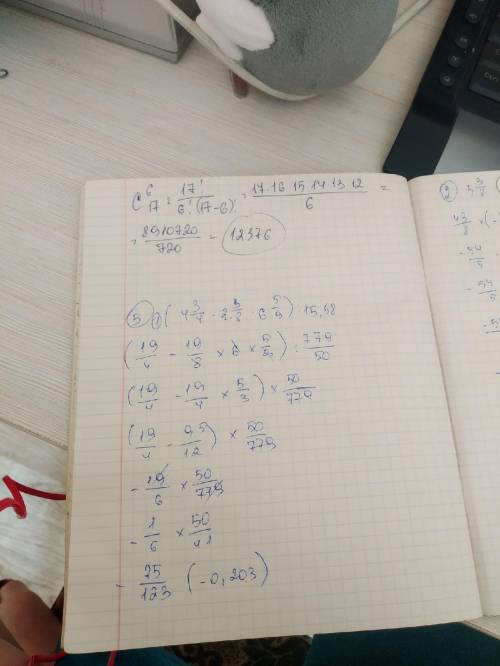 C⁶₁₇ = 17! / 6!·(17-6)! = 17·16·15·14·13·12 / 6 =
= 8910720 / 720 = 12376
5 1) ( 4 3/4 - 2 3/8 · 6 5/9 ) : 15,58
( 19/4 - 19/8 × 6 × 5/9 ) : 779/50
( 19/4 - 19/4 × 5/3 ) × 50/779
( 19/4 - 95/12 ) × 50/779
- 19/6 × 50/779
- 1/6 × 50/41
- 25/123 (-0,203)
2
43/8 × (-
- 54/5
- 54/5